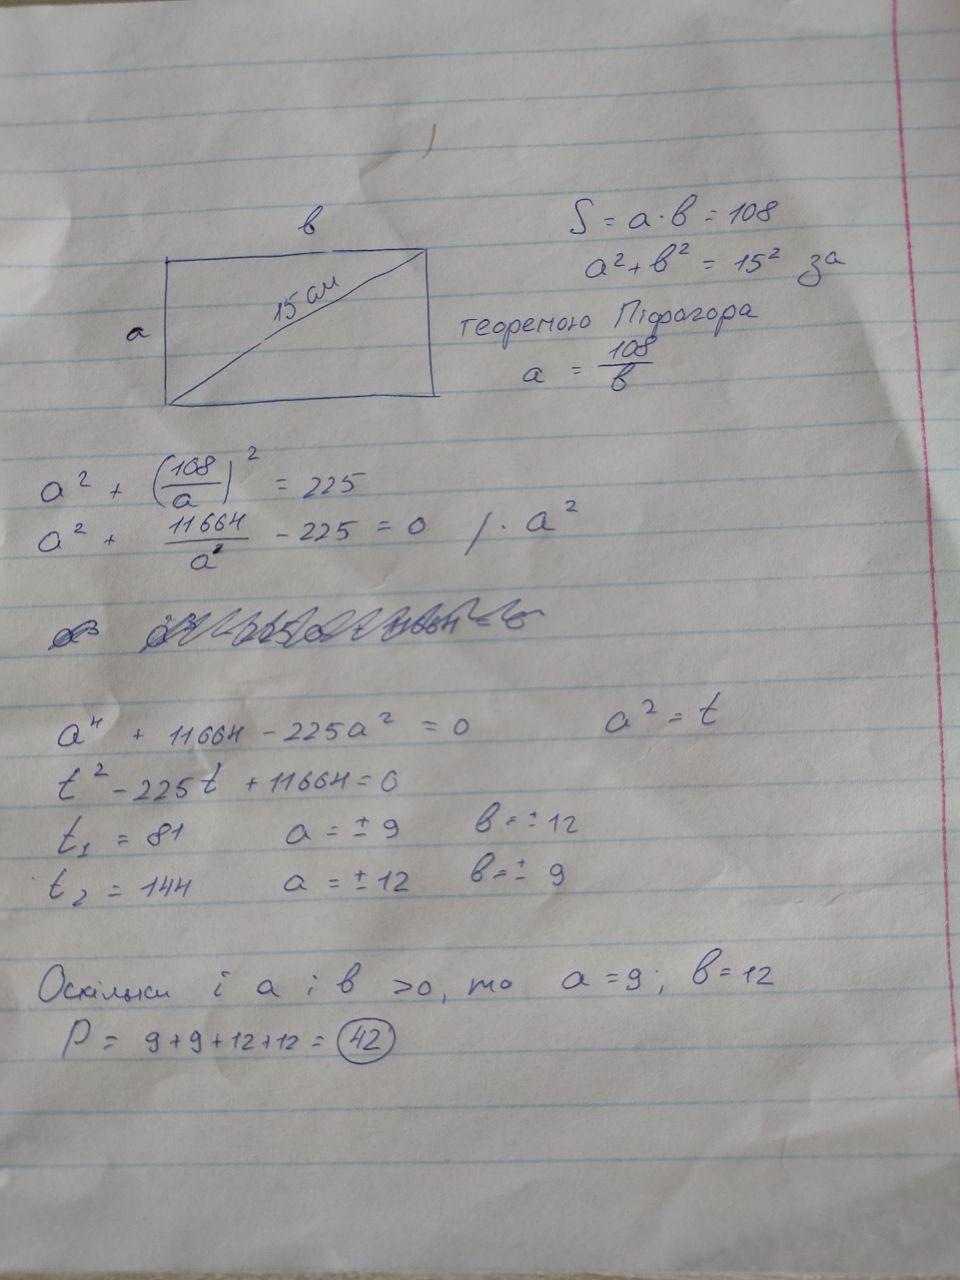 в
S = a · в = 108
a² + в² = 15² за
15 см
a
теоремою Піфагора
a = 108/в
a² + (108/a)² = 225
a² + 11664/a² - 225 = 0 / · a²
a⁴ + 11664 - 225a² = 0 a² = t
t² - 225t + 11664 = 0
t₁ = 81 a = ± 9 в = ± 12
t₂ = 144 a = ± 12 в = ± 9
Оскільки і a і в >0, то a = 9; в = 12
P = 9+9+12+12 = 42